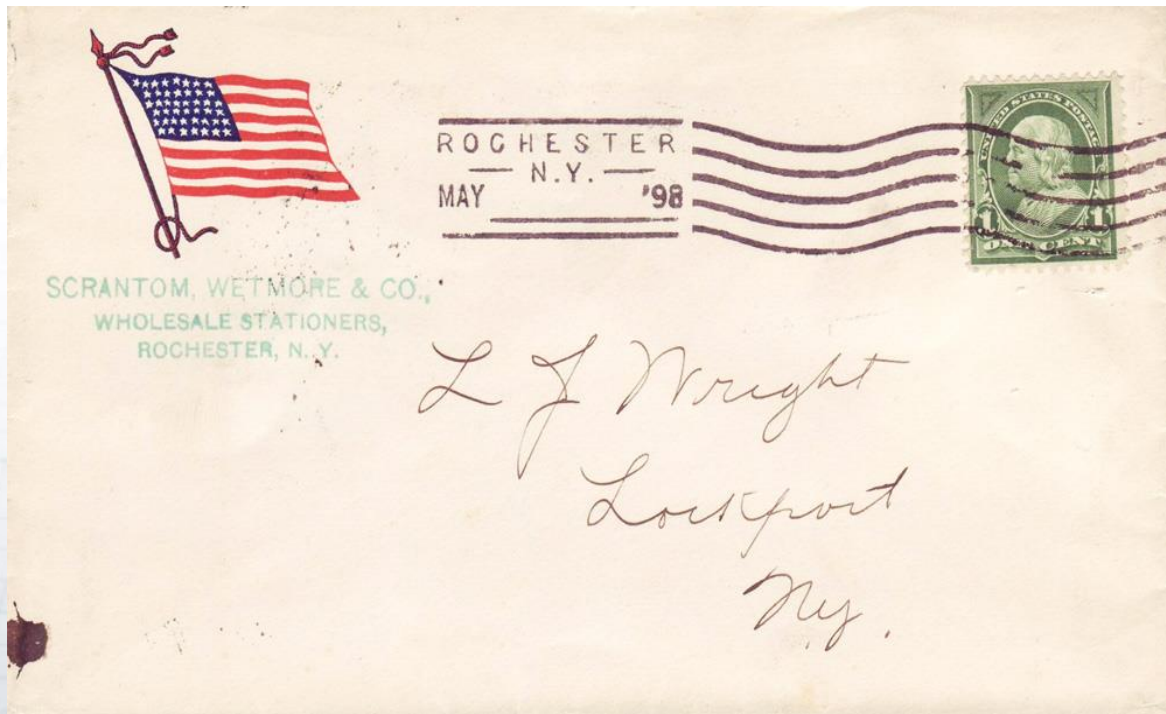 ROCHESTER
N.Y.
MAY '98
UNITED STATES POSTAGE
1 1
ONE CENT
SCRANTOM, WETMORE & CO.,
WHOLESALE STATIONERS,
ROCHESTER, N.Y.
L J Wright
Lockport
Ny.